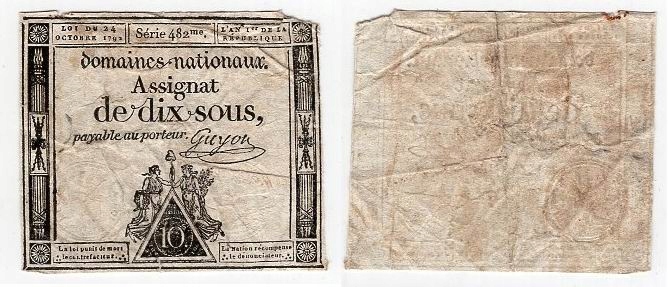 LOI DU 24
OCTOBRE 1792
Série 482me.
L'AN 1er DE LA
RÉPUBLIQUE
domaines-nationaux.
Assignat
de dix sous,
payable au porteur.
Guyon
10
La loi punit de mort
le contrefacteur.
La Nation récompense
le dénonciateur.